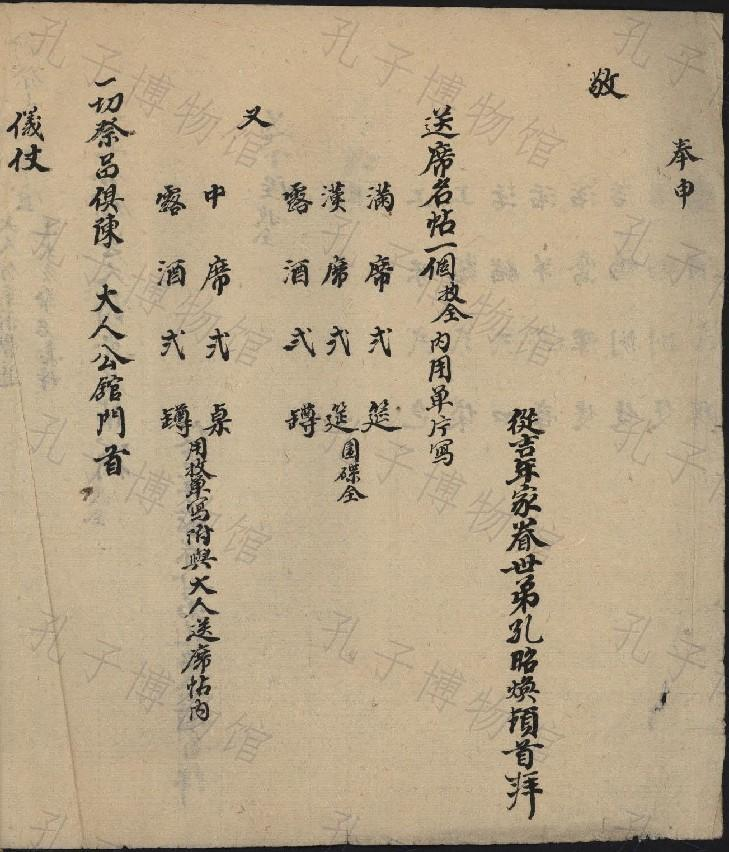 奉申
敬
從吉年家眷世弟孔昭煥頓首拜
送席名帖一個 封全 內用单片寫
滿席弍筵
漢席弍筵 圍碟全
露酒弍罇
又
中席弍桌 用封单寫附與大人送席帖內
露酒弍罇
一切祭品俱陳大人公館門首
儀仗
孔子博物馆